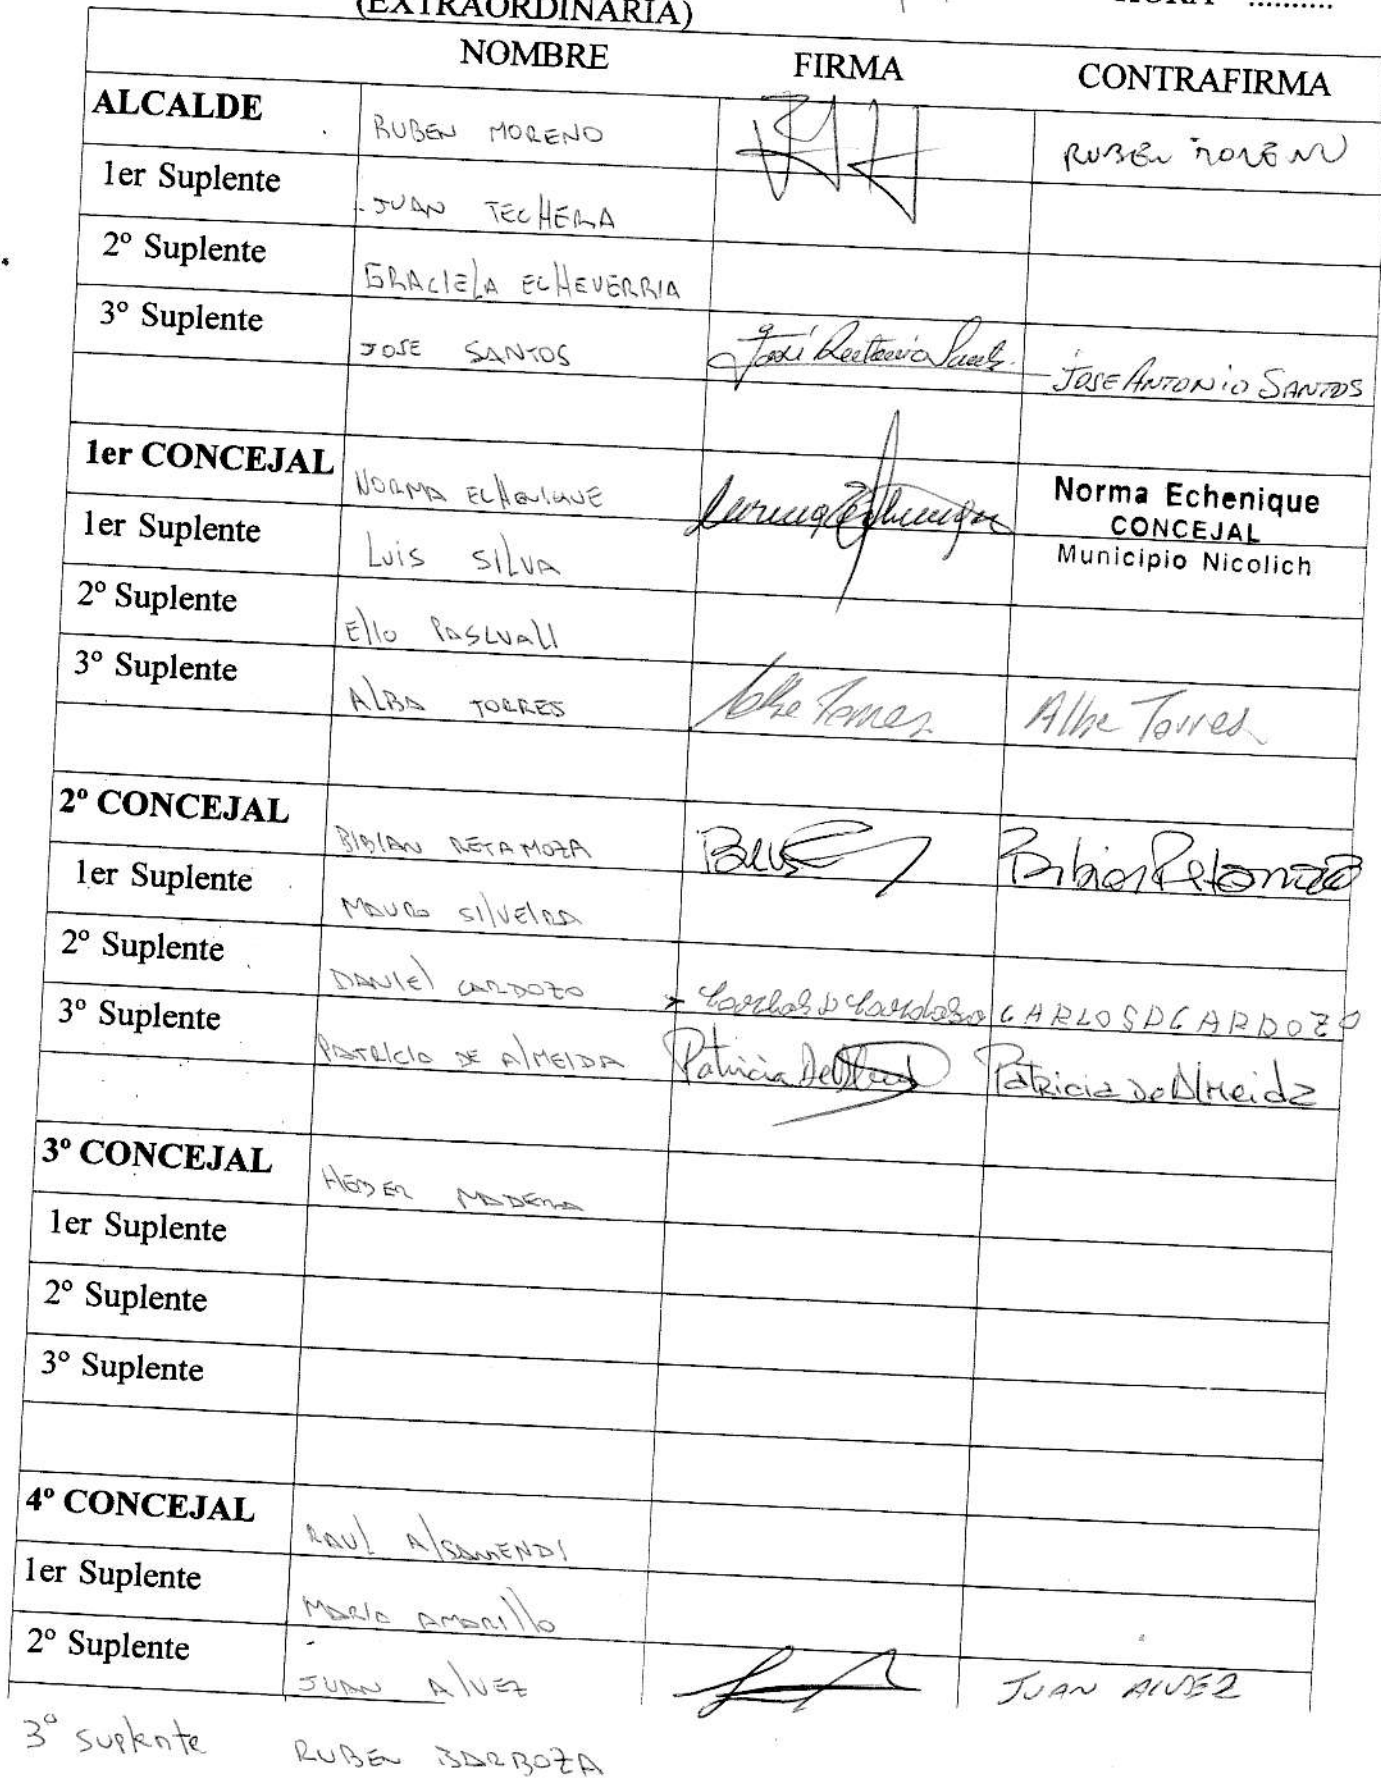 (EXTRAORDINARIA) HORA ..........
NOMBRE FIRMA CONTRAFIRMA
ALCALDE RUBEN MORENO RUBEN MORENO
1er Suplente JUAN TECHERA
2º Suplente GRACIELA ECHEVERRIA
3º Suplente JOSE SANTOS JOSE ANTONIO SANTOS
1er CONCEJAL NORMA ECHENIQUE Norma Echenique
CONCEJAL
Municipio Nicolich
1er Suplente Luis SILVA
2º Suplente Ello PASCUALI
3º Suplente ALBA TORRES Alba Torres Alba Torres
2º CONCEJAL BIBIAN RETAMOZA Bibian Retamoza
1er Suplente MAURO SILVEIRA
2º Suplente DANIEL CARDOZO Carlos D Cardozo CARLOS D CARDOZO
3º Suplente PATRICIA DE ALMEIDA Patricia De Patricia De Almeida
3º CONCEJAL HEBER MADERA
1er Suplente
2º Suplente
3º Suplente
4º CONCEJAL RAUL ALSAMENDI
1er Suplente MARIO AMARILLO
2º Suplente JUAN ALVEZ JUAN ALVEZ
3º suplente RUBEN BARBOZA